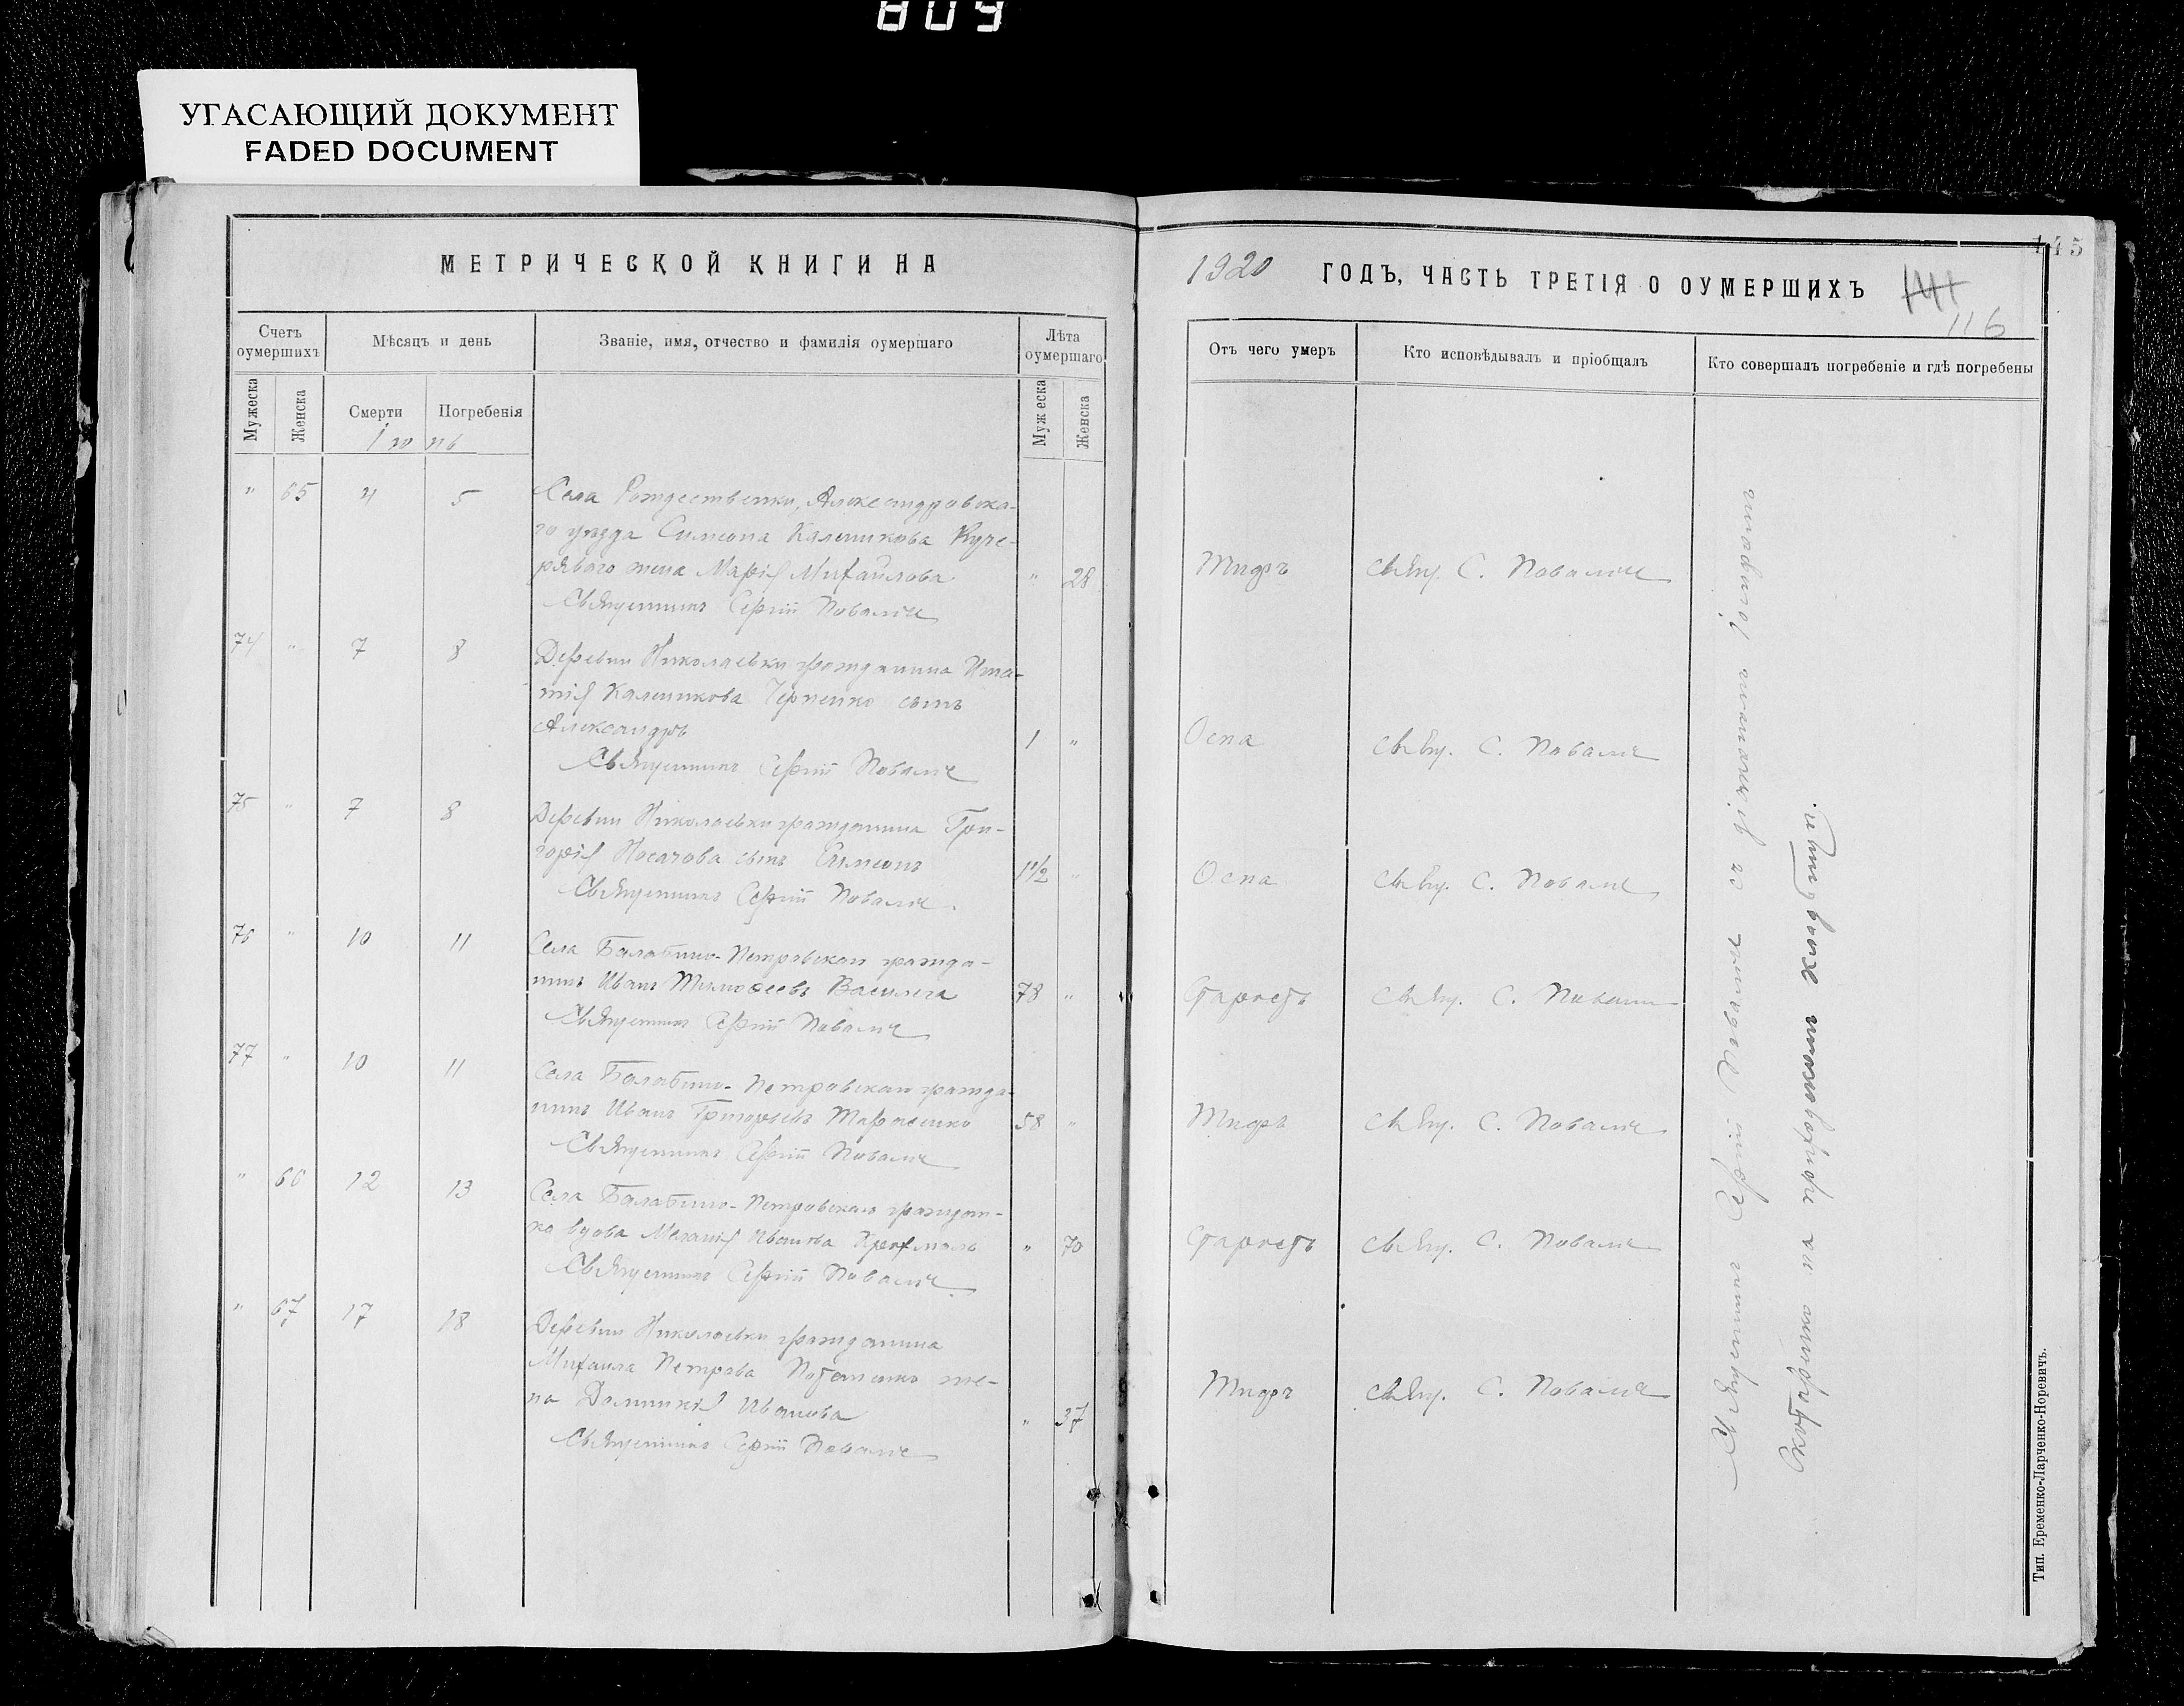 809
УГАСАЮЩИЙ ДОКУМЕНТ
FADED DOCUMENT
МЕТРИЧЕСКОЙ КНИГИ НА
Счетъ оумершихъ
Мѣсяцъ и день
Званіе, имя, отчество и фамилія оумершаго
Лѣта оумершаго
Мужеска
Женска
Смерти
Погребенія
Мужеска
Женска
" 65 4 5 Села Рождественки, Александровска-
го уѣзда Симеона Калиникова Куче-
ряваго жена Марія Михайлова " 28
Священникъ Сергій Повалій
74 " 7 8 Деревни Николаевки гражданина Игна-
тія Калиникова сынъ
Александръ 1 "
Священникъ Сергій Повалій
75 " 7 8 Деревни Николаевки гражданина Гри-
горія Носачова сынъ Симеонъ 1 1/2 "
Священникъ Сергій Повалій
76 " 10 11 Села Балабино-Петровскаго гражда-
нинъ Иванъ Тимоѳеевъ 78 "
Священникъ Сергій Повалій
77 " 10 11 Села Балабино-Петровскаго гражда-
нинъ Иванъ Григорьевъ Тарасенко 58 "
Священникъ Сергій Повалій
" 66 12 13 Села Балабино-Петровскаго граждан-
ка вдова Меланія Иванова " 70
Священникъ Сергій Повалій
" 67 17 18 Деревни Николаевки гражданина
Михаила Петрова Потапенко же-
на Домникія Иванова " 37
Священникъ Сергій Повалій
145
1920 ГОДЪ, ЧАСТЬ ТРЕТІЯ О ОУМЕРШИХЪ
116
Отъ чего умеръ
Кто исповѣдывалъ и пріобщалъ
Кто совершалъ погребеніе и гдѣ погребены
Тифъ Свящ. С. Повалій
Оспа Свящ. С. Повалій
Оспа Свящ. С. Повалій
Старость Свящ. С. Повалій
Тифъ Свящ. С. Повалій
Старость Свящ. С. Повалій
Тифъ Свящ. С. Повалій
Священникъ Сергій Повалій съ діакономъ Іосифомъ
на приходскомъ кладбищѣ.
Тип. Еременко-Ларченко-Норевичъ.